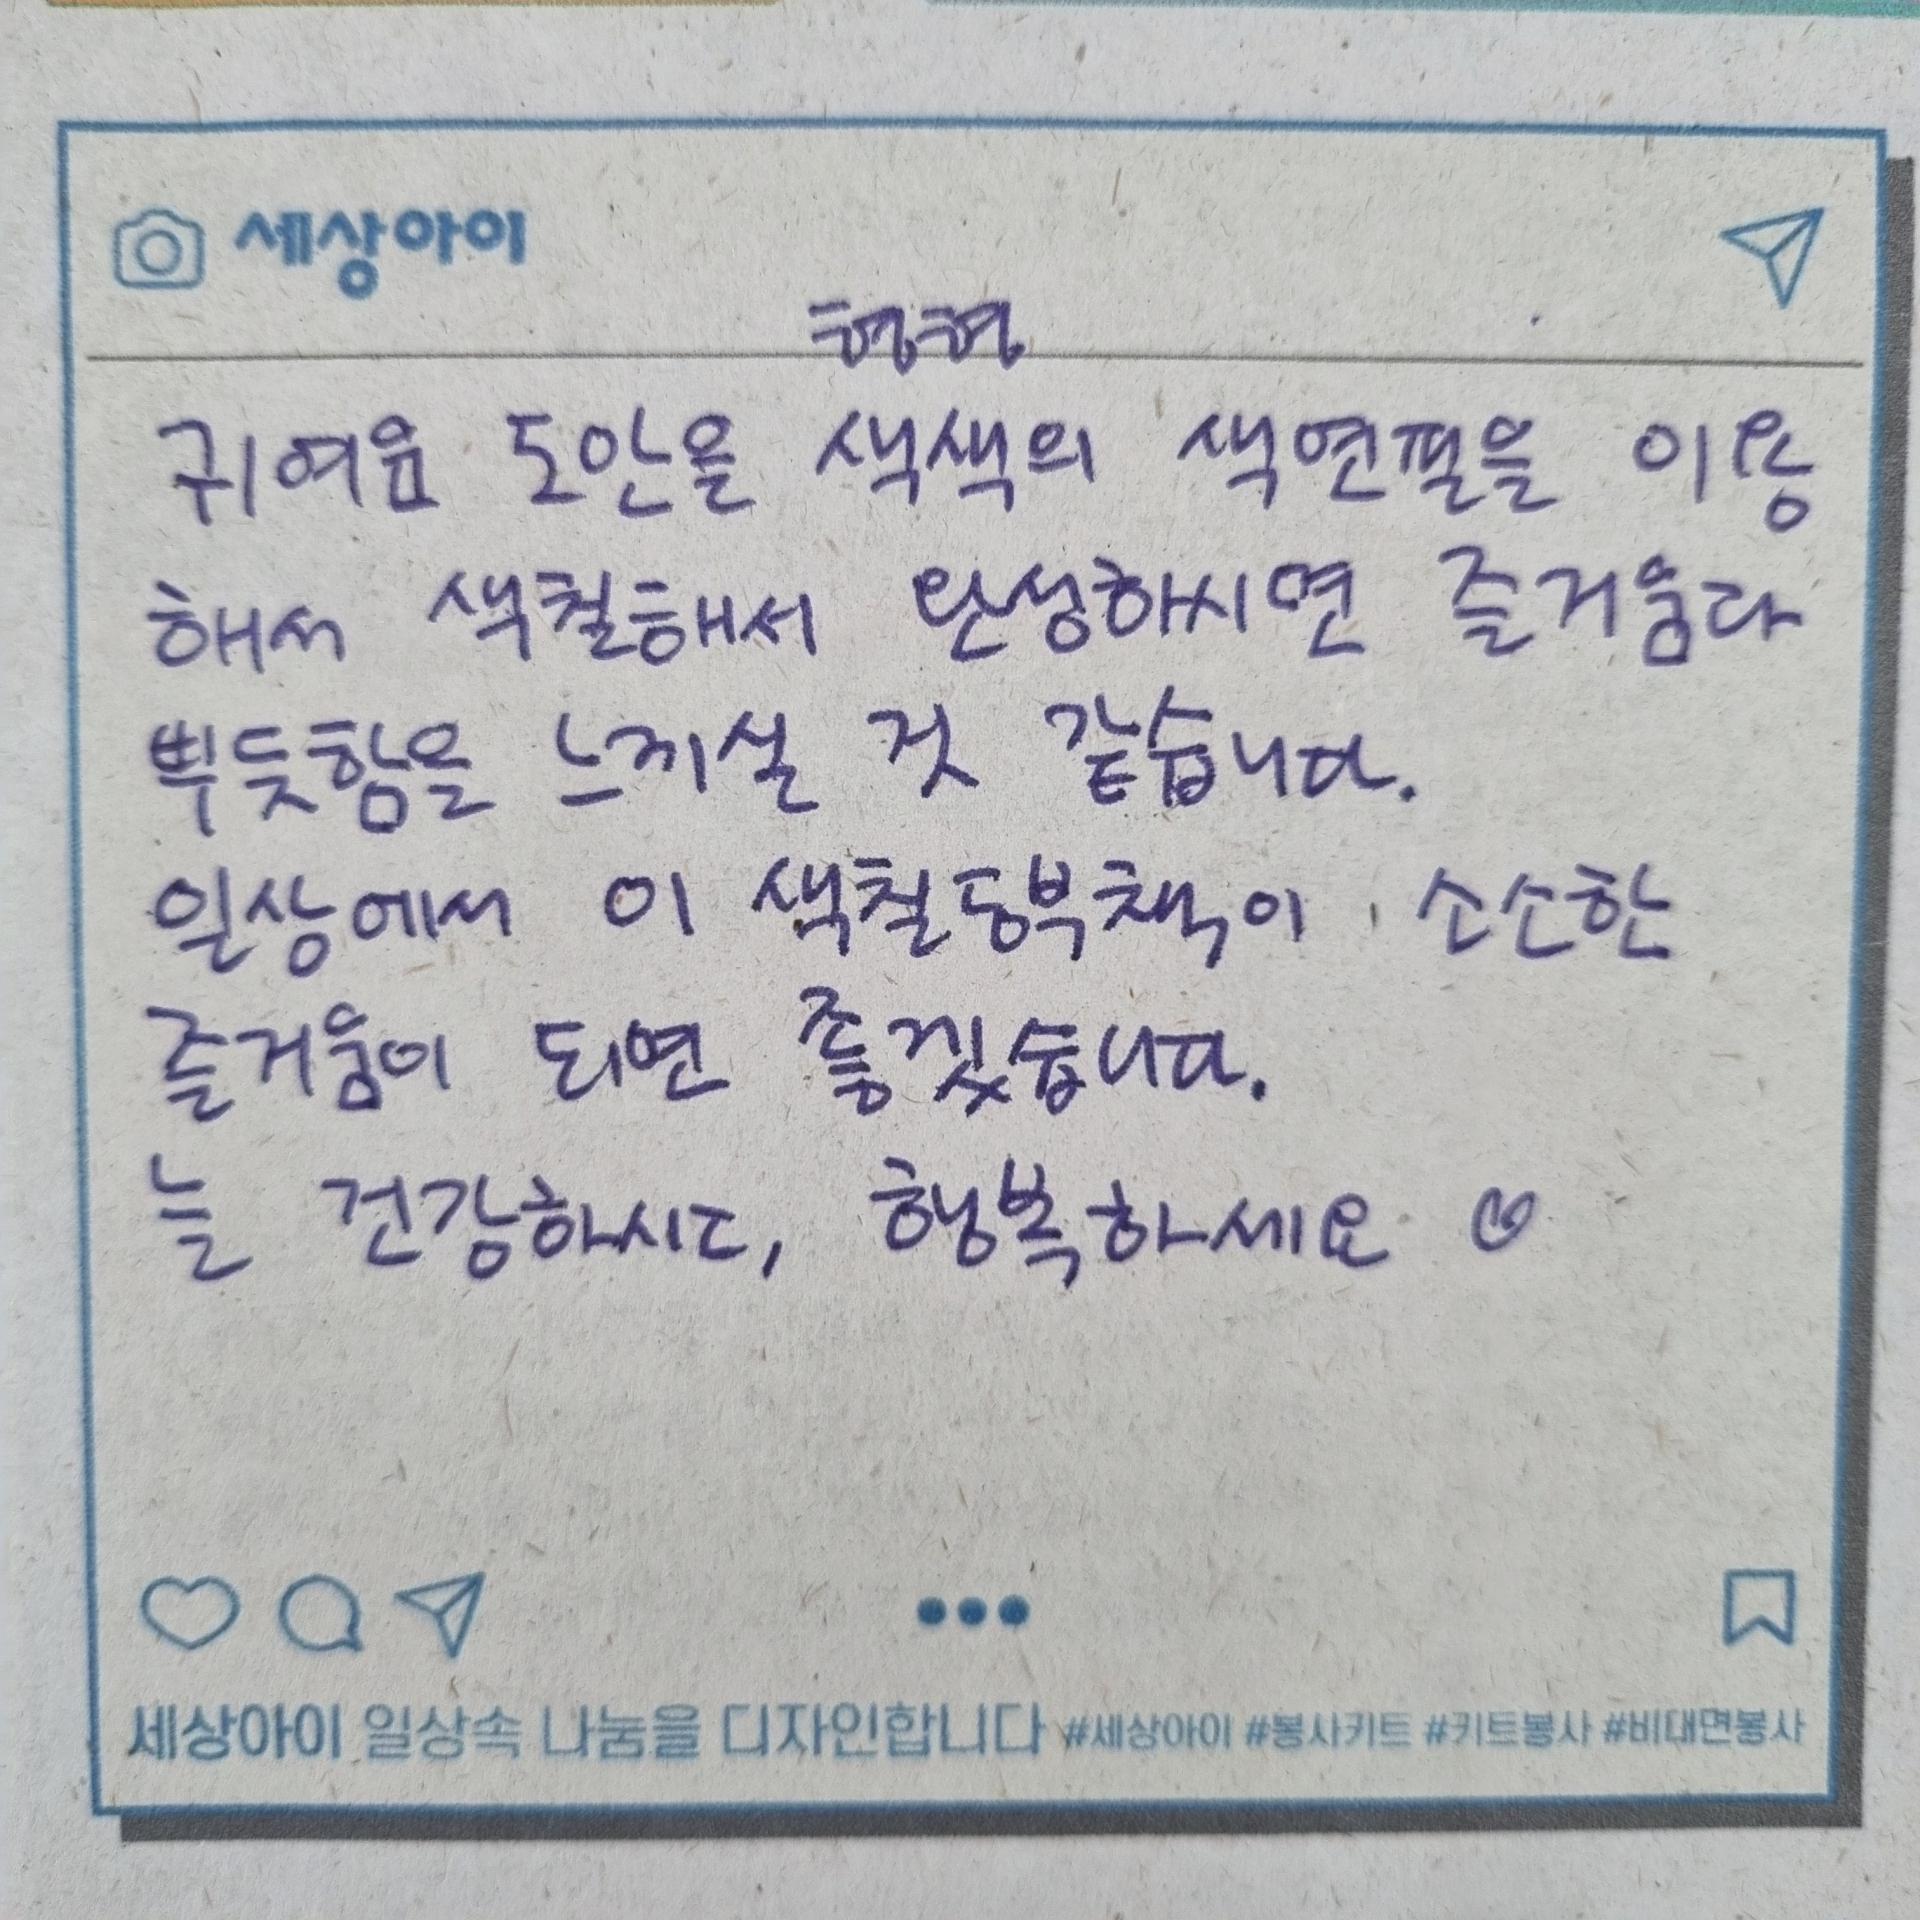 세상아이
형형
귀여움 도안을 색색의 색연필을 이용
해서 색칠해서 완성하시면 즐거움과
뿌듯함을 느끼실 것 같습니다.
일상에서 이 색칠공부책이 소소한
즐거움이 되면 좋겠습니다.
늘 건강하시고, 행복하세요
세상아이 일상속 나눔을 디자인합니다 #세상아이 #봉사키트 #키트봉사 #비대면봉사